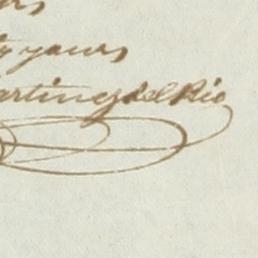 yours
artinez del Rio